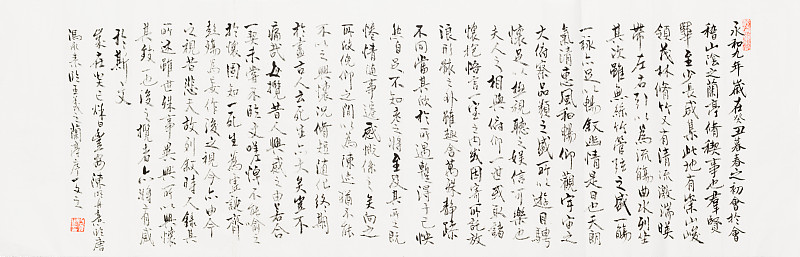 永和九年歲在癸丑暮春之初會於會
稽山陰之蘭亭脩稧事也羣賢
畢至少長咸集此地有崇山峻
領茂林脩竹又有清流激湍暎
帶左右引以為流觴曲水列坐
其次雖無絲竹管弦之盛一觴
一詠亦足以暢叙幽情是日也天朗
氣清惠風和暢仰觀宇宙之
大俯察品類之盛所以遊目騁
懷足以極視聽之娛信可樂也
夫人之相與俯仰一世或取諸
懷抱悟言一室之內或因寄所託放
浪形骸之外雖趣舍萬殊靜躁
不同當其欣於所遇暫得於己怏
然自足不知老之將至及其所之既
惓情隨事遷感慨係之矣向之
所欣俛仰之間以為陳迹猶不能
不以之興懷況脩短隨化終期
於盡古人云死生亦大矣豈不
痛哉每攬昔人興感之由若合
一契未嘗不臨文嗟悼不能喻之
於懷固知一死生為虛誕齊
彭殤為妄作後之視今亦由今
之視昔悲夫故列叙時人錄其
所述雖世殊事異所以興懷
其致一也後之攬者亦將有感
於斯文
歲在
馮承素臨王羲之蘭亭序